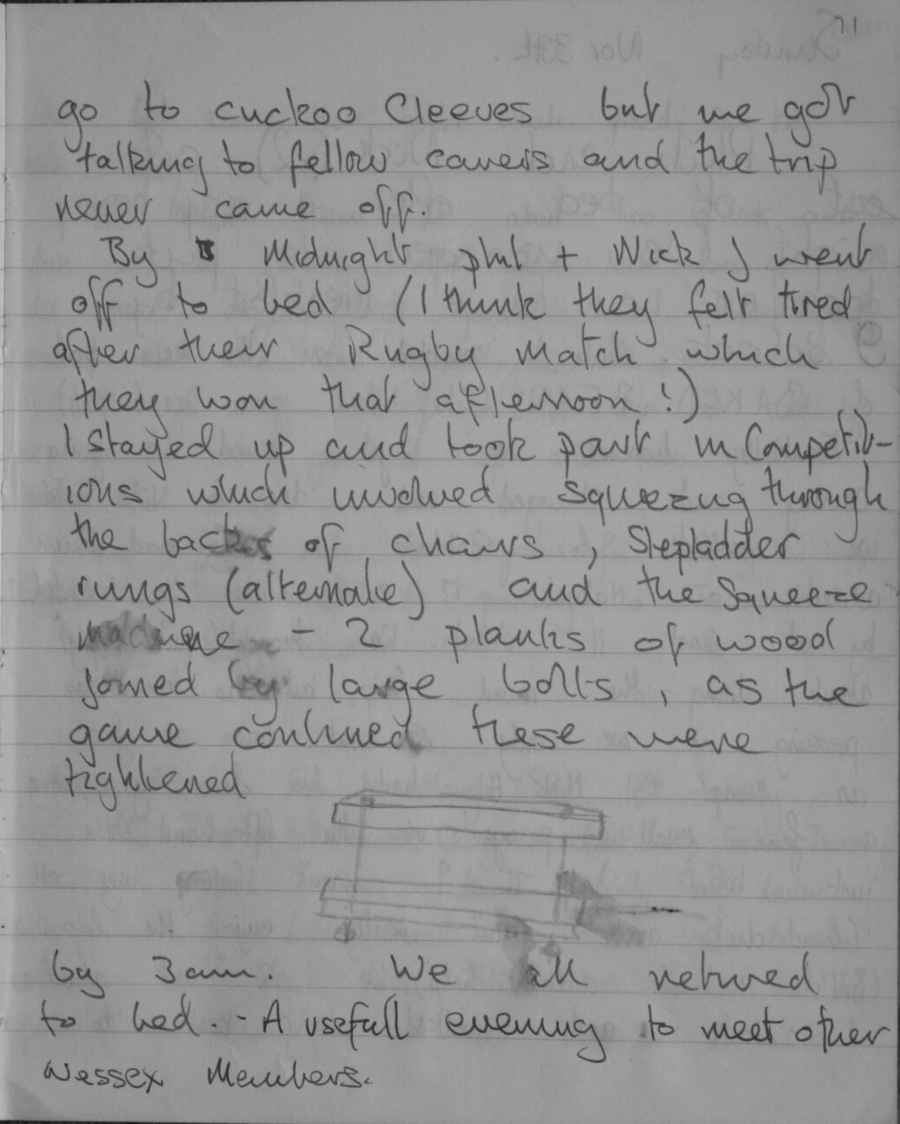 71
go to cuckoo Cleeves but we got
talking to fellow cavers and the trip
never came off.
By Midnight phil + Nick J went
off to bed (I think they felt tired
after their Rugby Match which
they won that afternoon!)
I stayed up and took part in Competit-
ions which involved squeezing through
the backs of chairs, Stepladder
rungs (alternate) and the Squeeze
machine - 2 planks of wood
joined by large bolts, as the
game continued these were
tightened
by 3am. We all retired
to bed. - A usefull evening to meet other
Wessex Members.